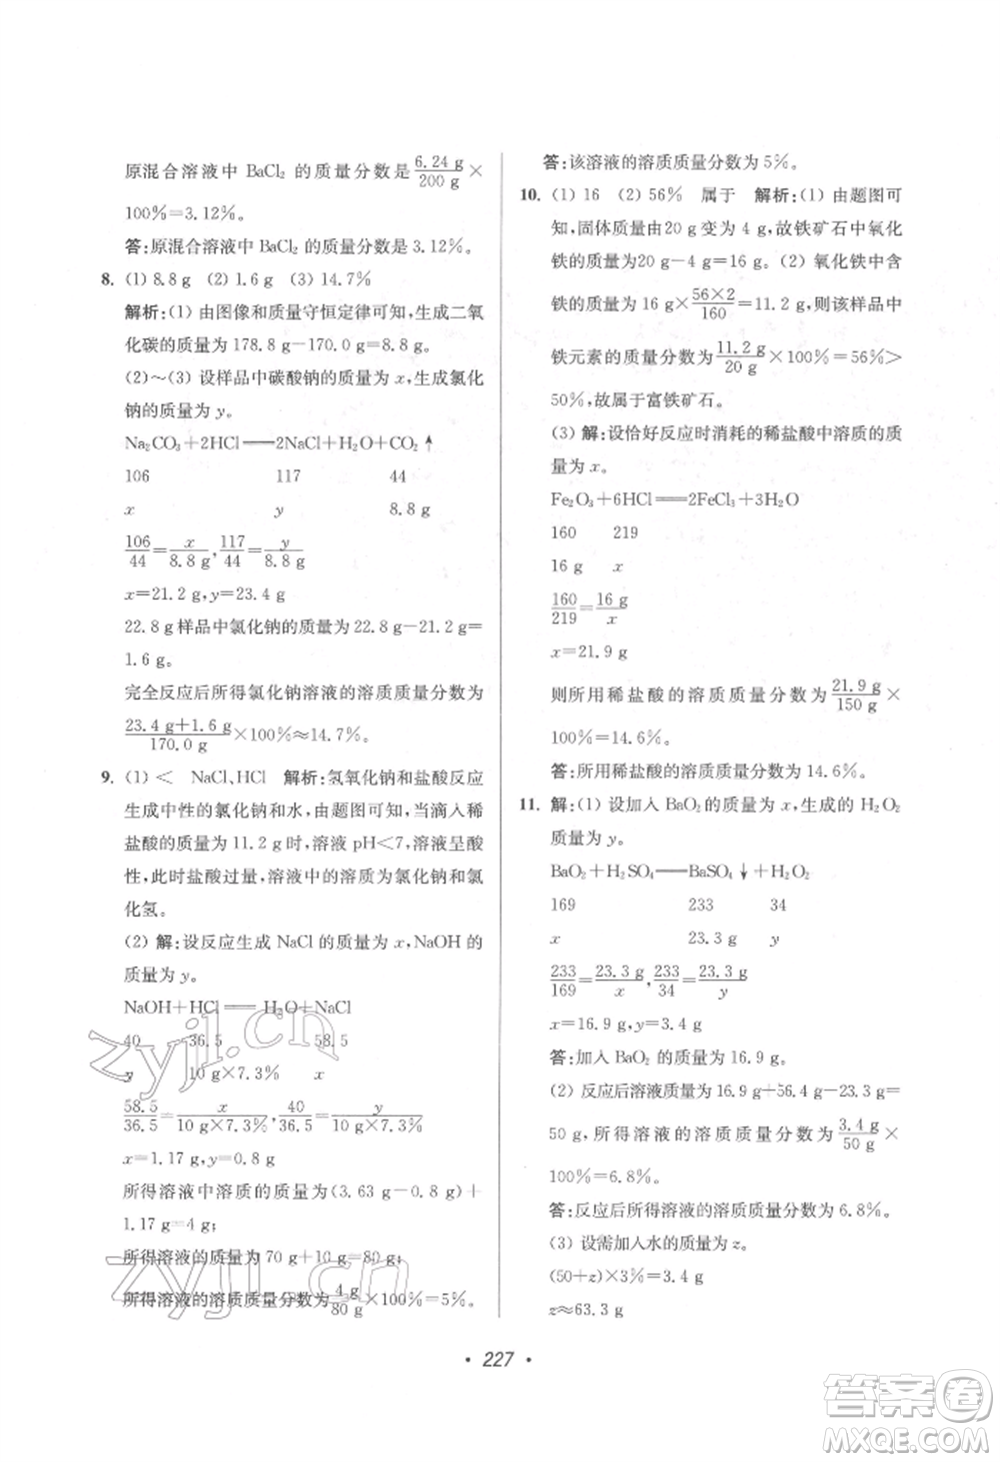 原混合溶液中 BaCl₂ 的质量分数是 6.24 g/200 g ×
100%=3.12%。
答:原混合溶液中 BaCl₂ 的质量分数是 3.12%。
8. (1) 8.8 g (2) 1.6 g (3) 14.7%
解析:(1) 由图像和质量守恒定律可知,生成二氧
化碳的质量为 178.8 g−170.0 g=8.8 g。
(2)~(3) 设样品中碳酸钠的质量为 x,生成氯化
钠的质量为 y。
Na₂CO₃+2HCl══2NaCl+H₂O+CO₂↑
106 117 44
x y 8.8 g
106/44=x/8.8 g,117/44=y/8.8 g
x=21.2 g,y=23.4 g
22.8 g 样品中氯化钠的质量为 22.8 g−21.2 g=
1.6 g。
完全反应后所得氯化钠溶液的溶质质量分数为
23.4 g+1.6 g/170.0 g×100%≈14.7%。
9. (1) < NaCl、HCl 解析:氢氧化钠和盐酸反应
生成中性的氯化钠和水,由题图可知,当滴入稀
盐酸的质量为 11.2 g 时,溶液 pH<7,溶液呈酸
性,此时盐酸过量,溶液中的溶质为氯化钠和氯
化氢。
(2) 解:设反应生成 NaCl 的质量为 x,NaOH 的
质量为 y。
NaOH+HCl══H₂O+NaCl
40 36.5 58.5
y 10 g×7.3% x
58.5/36.5=x/10 g×7.3%,40/36.5=y/10 g×7.3%
x=1.17 g,y=0.8 g
所得溶液中溶质的质量为(3.63 g−0.8 g)+
1.17 g=4 g;
所得溶液的质量为 70 g+10 g=80 g;
所得溶液的溶质质量分数为 4 g/80 g×100%=5%。
答:该溶液的溶质质量分数为 5%。
10. (1) 16 (2) 56% 属于 解析:(1) 由题图可
知,固体质量由20 g变为 4 g,故铁矿石中氧化
铁的质量为20 g−4 g=16 g。(2) 氧化铁中含
铁的质量为 16 g×56×2/160=11.2 g,则该样品中
铁元素的质量分数为 11.2 g/20 g×100%=56%>
50%,故属于富铁矿石。
(3) 解:设恰好反应时消耗的稀盐酸中溶质的质
量为 x。
Fe₂O₃+6HCl══2FeCl₃+3H₂O
160 219
16 g x
160/219=16 g/x
x=21.9 g
则所用稀盐酸的溶质质量分数为 21.9 g/150 g×
100%=14.6%。
答:所用稀盐酸的溶质质量分数为 14.6%。
11. 解:(1) 设加入 BaO₂ 的质量为 x,生成的 H₂O₂
质量为 y。
BaO₂+H₂SO₄══BaSO₄↓+H₂O₂
169 233 34
x 23.3 g y
233/169=23.3 g/x,233/34=23.3 g/y
x=16.9 g,y=3.4 g
答:加入 BaO₂ 的质量为 16.9 g。
(2) 反应后溶液质量为 16.9 g+56.4 g−23.3 g=
50 g,所得溶液的溶质质量分数为 3.4 g/50 g×
100%=6.8%。
答:反应后溶液的溶质质量分数为 6.8%。
(3) 设需加入水的质量为 z。
(50+z)×3%=3.4 g
z≈63.3 g
· 227 ·
zyjl.cn
zyjl.cn
答案圈
MXQE.COM